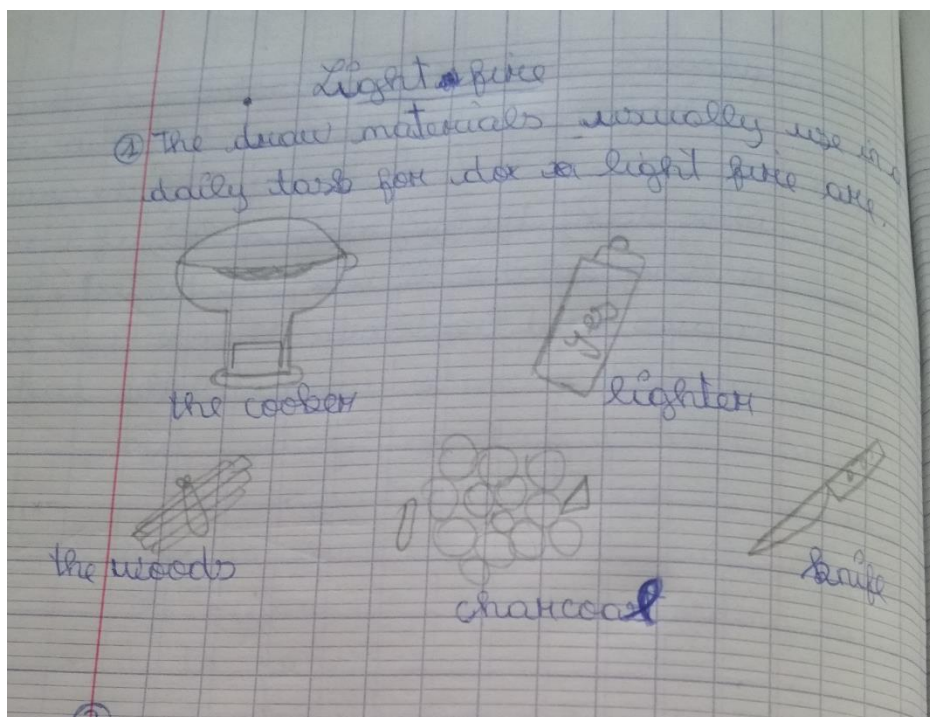 Light fire
① The draw materials normally use in
daily task for do a light fire are.
the cooker
yes
lighter
the woods
charcoal
knife